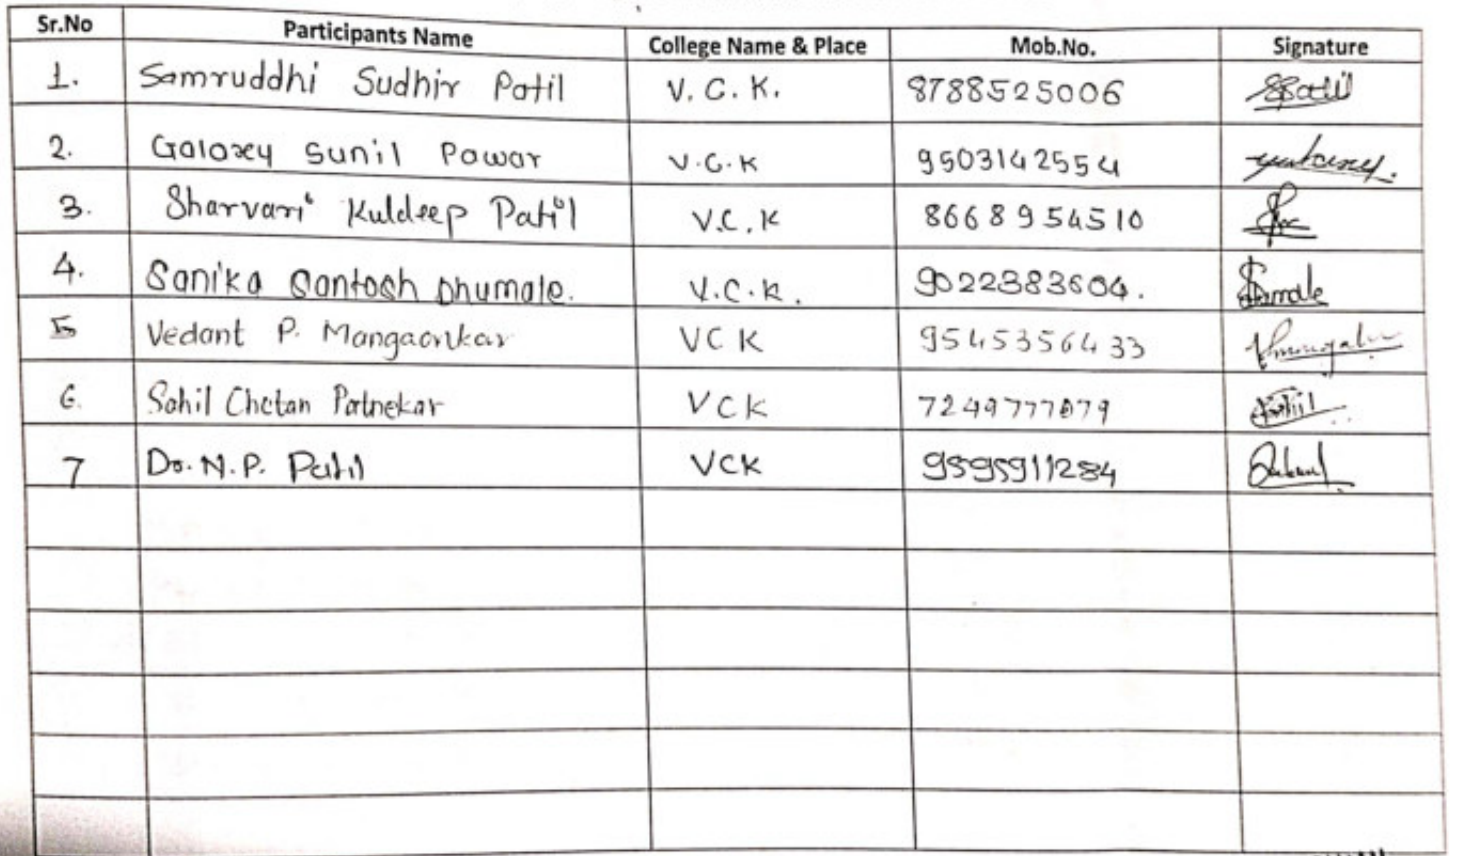 Sr.No Participants Name College Name & Place Mob.No. Signature
1. Samruddhi Sudhir Patil V. C. K. 8788525006 SPatil
2. Galaxy Sunil Pawar V.C.K 9503142554
3. Sharvari Kuldeep Patil V.C.K 8668954510
4. Sanika Santosh Dhumale. V.C.K. 9022383604.
5 Vedant P. Mangaonkar VCK 9545356433
6. Sahil Chetan Patnekar VCK 7249777079
7 Dr. N.P. Patil VCK 9595911284